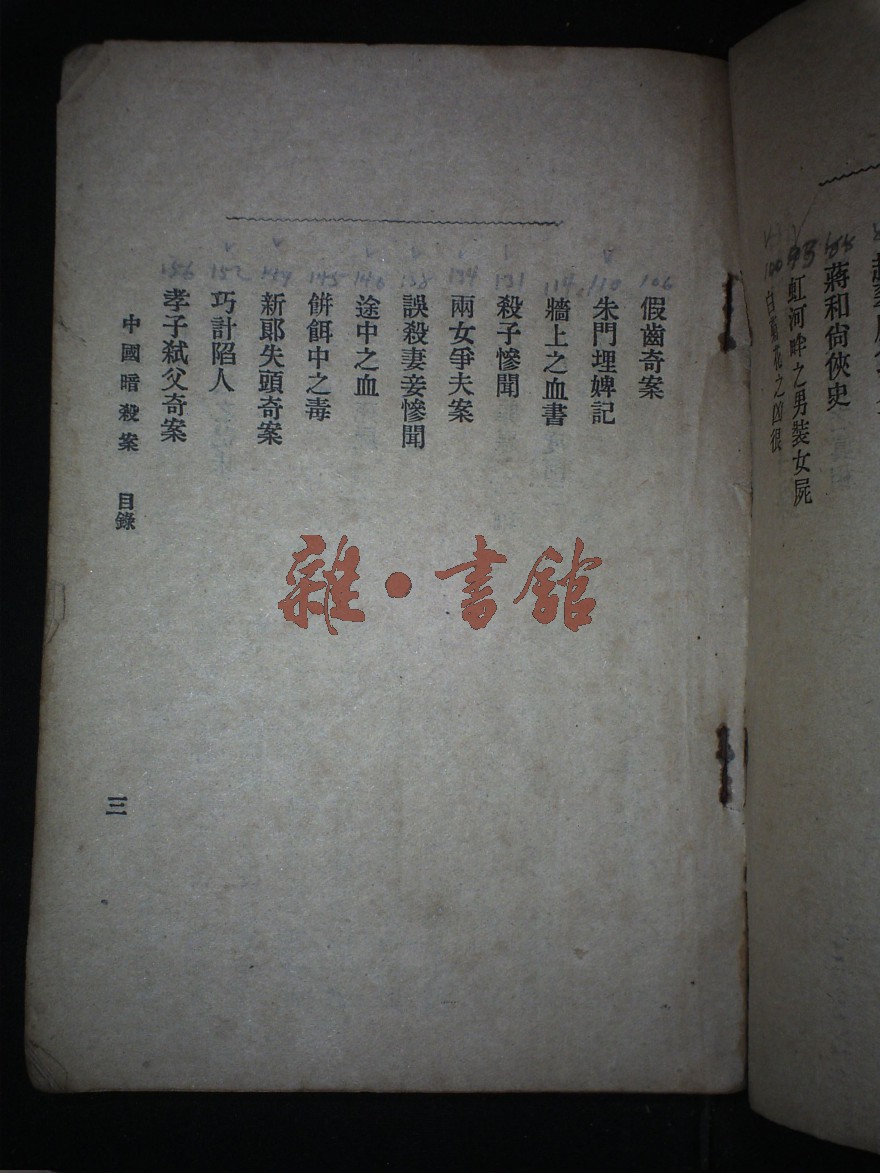 蔣和尙俠史
158
虹河畔之男裝女屍
白菊花之凶很
100
假齒奇案
106
朱門埋婢記
110
牆上之血書
114
殺子慘聞
131
兩女爭夫案
134
誤殺妻妾慘聞
138
途中之血
140
餅餌中之毒
145
新郎失頭奇案
149
巧計陷人
152
孝子弑父奇案
156
中國暗殺案 目錄
三
雜·書館